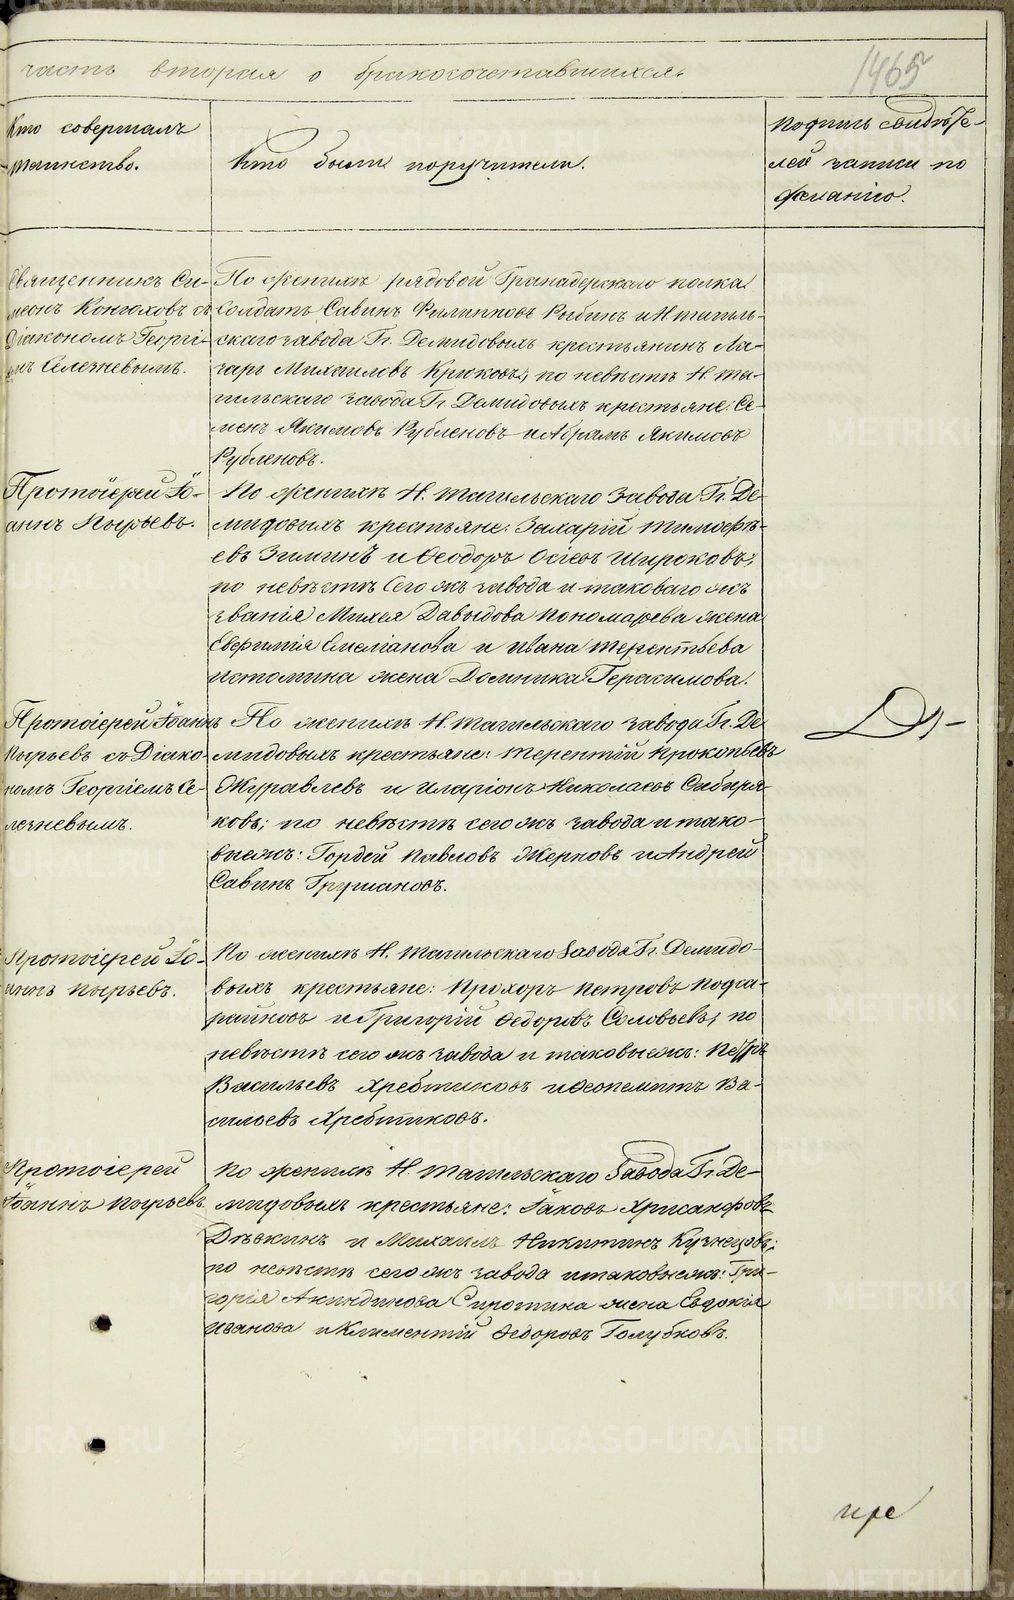 часть вторая о бракосочетавшихся.
1465
Кто совершалъ
таинство.
Кто были поручители.
Подпись свидѣте-
лей записи по
желанію.
Священникъ Си-
меонъ Конюховъ съ
Діакономъ Георгі-
емъ Селезневымъ.
По женихѣ рядовой Гранадерскаго полка
Солдатъ Савинъ Филиповъ Рыбинъ и Н тагиль-
скаго завода Гг. Демидовыхъ крестьянинъ Ла-
зарь Михаиловъ Крюковъ; по невѣстѣ Н. Та-
гильскаго завода Гг Демидовыхъ крестьяне: Се-
менъ Якимовъ Рубленовъ и Абрамъ Якимовъ
Рубленовъ.
Протоіерей Іо-
аннъ Пырьевъ.
По женихѣ Н. Тагильскаго Завода Гг. Де-
мидовыхъ крестьяне: Захарій Тимофѣ-
евъ Зиминъ и Ѳеодоръ Осіевъ Широковъ;
по невѣстѣ Сего жъ завода и таковаго жъ
званія Михея Давыдова Пономарева жена
Евфимія Емеліанова и Ивана Терентьева
Истомина жена Домника Герасимова.
Протоіерей Іоаннъ
Пырьевъ съ Діако-
номъ Георгіемъ Се-
лезневымъ.
По женихѣ Н. Тагильскаго завода Гг. Де
мидовыхъ крестьяне: Терентій Прокопьевъ
Журавлевъ и Иларіонъ Николаевъ Сибиря-
ковъ; по невѣстѣ сего жъ завода и тако-
выежъ: Гордей Павловъ Жерновъ и Андрей
Савинъ
Протоіерей Іо-
аннъ Пырьевъ.
По женихѣ Н. Тагильскаго Завода Гг. Демидо-
выхъ крестьяне: Прохоръ Петровъ
и Григорій Ѳедоровъ Соловьевъ; по
невѣстѣ сего жъ завода и таковыежъ: Петръ
Васильевъ Хребтиковъ и Ѳеопемптъ Ва-
сильевъ Хребтиковъ.
Протоіерей
Іоаннъ Пырьевъ
По женихѣ Н Тагильскаго Завода Гг Де-
мидовыхъ крестьяне: Іаковъ Хрисанфовъ
Дѣвкинъ и Михаилъ Никитинъ Кузнецовъ;
по невѣстѣ сего жъ завода и таковыежъ: Гри-
горія Акиндинова Сиротина жена Евдокія
Иванова и Климентій Ѳедоровъ Голубковъ.
METRIKI.GASO-URAL.RU